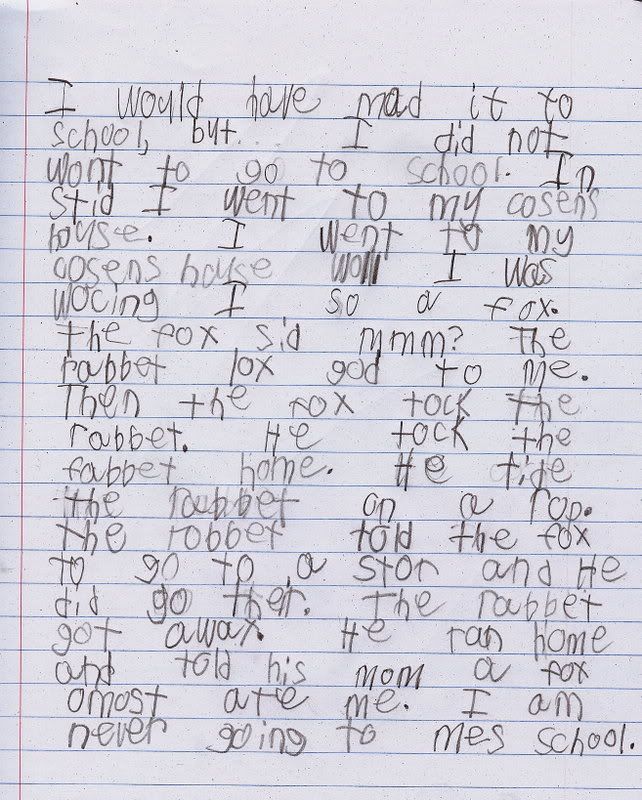 I would have mad it to
school, but... I did not
wont to go to school. In
stid I went to my cosens
house. I went to my
cosens house wan I was
wocing I so a fox.
the fox sid mmm? The
rabbet lox god to me.
Then the fox tock the
rabbet. He tock the
rabbet home. He tide
the rabbet on a rop.
the rabbet told the fox
to go to a stor and He
did go ther. The rabbet
got awax. He ran home
and told his mom a fox
omost ate me. I am
never going to mes school.